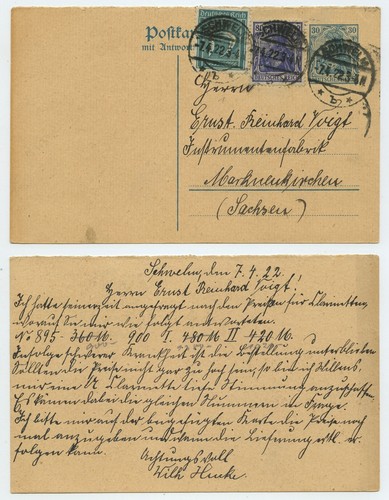 Postkarte
mit Antwort
Deutsches Reich
30
30
SCHWELM
7.4.22.
b
Herrn
Ernst Reinhard Voigt
Instrumentenfabrik
Markneukirchen
(Sachsen)
Schwelm, den 7.4.22.
Herrn Ernst Reinhard Voigt!
Ich hatte seinerzeit angefragt nach den Preisen für Clarinetten
worauf Sie mir wie folgt antworteten.
No 895 360 M. 900 I. 480 M II 420 M.
Infolge schwerer Krankheit ist die Bestellung unterblieben
Sollten die Preise nicht gar zu hoch sein, so bin ich Willens
mir eine Clarinette tiefe Stimmung anzuschaffen
Es kämen dabei die gleichen Nummern in Frage.
Ich bitte mir auf der beigefügten Karte die Preise noch
mal anzugeben und wann die Lieferung evtl. er-
folgen kann.
Achtungsvoll
Wilh